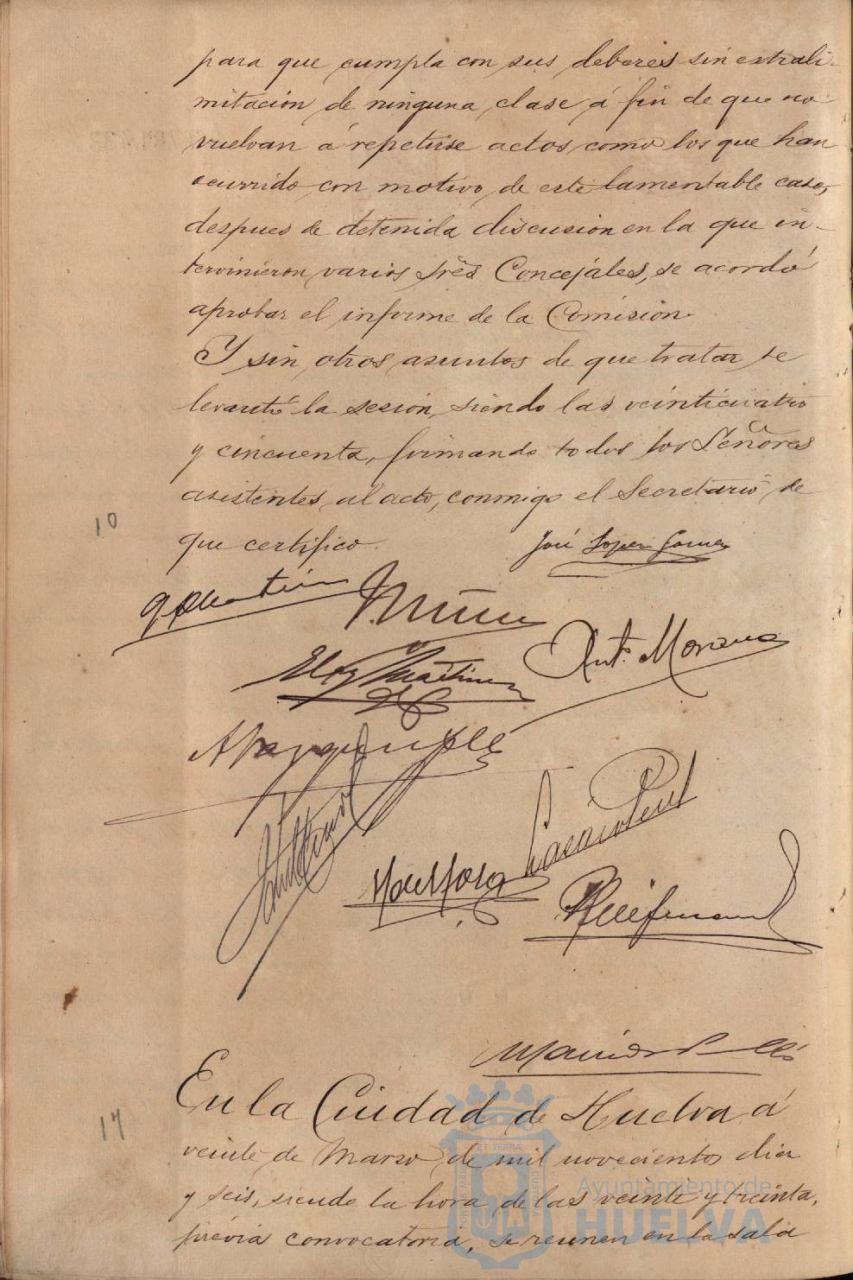 para que cumpla con sus deberes sin extrali-
mitación de ninguna clase á fin de que no
vuelvan á repetirse actos como los que han
ocurrido con motivo de este lamentable caso,
despues de detenida discusion en la que in-
tervinieron varios Srẽs Concejáles, se acordó
aprobar el informe de la Comisión.
Y sin otros asuntos de que tratar se
levantó la sesión, siendo las veinticuatro
y cincuenta, firmando todos los Señores
asistentes al acto, conmigo el Secretario de
10
que certifico.
José Lopez Gomez
Ant. Moreno
Eloy Martinez
En la Ciudad de Huelva á
17
veinte de Marzo de mil novecientos diez
y seis, siendo la hora de las veinte y treinta,
prévia convocatoria, se reunen en la sala
Ayuntamiento de
HUELVA